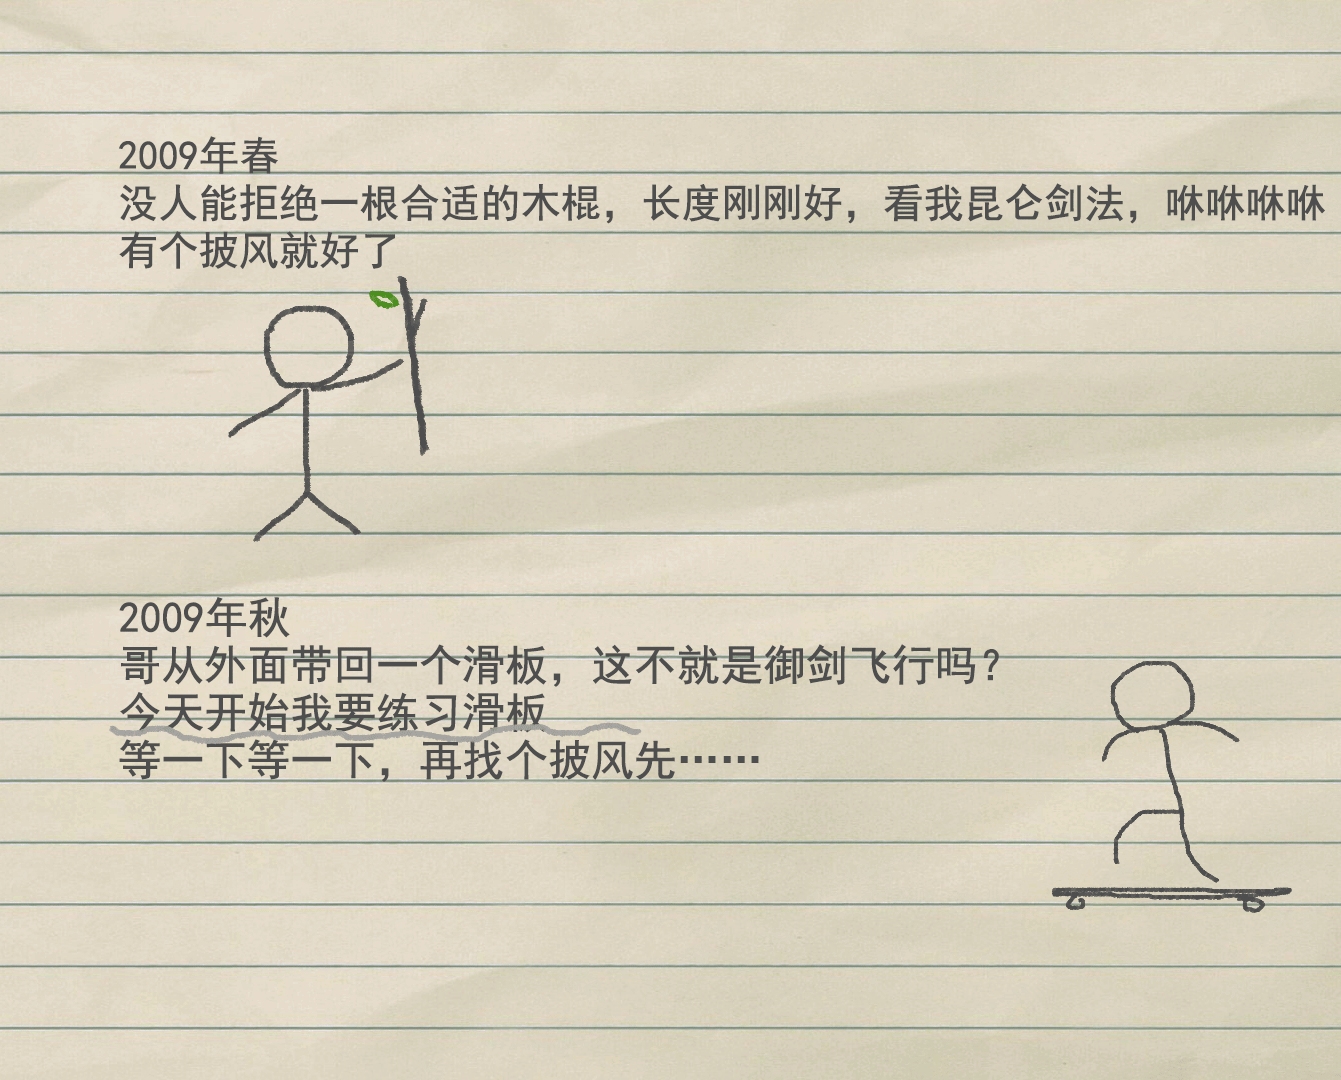 2009年春
没人能拒绝一根合适的木棍，长度刚刚好，看我昆仑剑法，咻咻咻咻
有个披风就好了
2009年秋
哥从外面带回一个滑板，这不就是御剑飞行吗？
今天开始我要练习滑板
等一下等一下，再找个披风先……